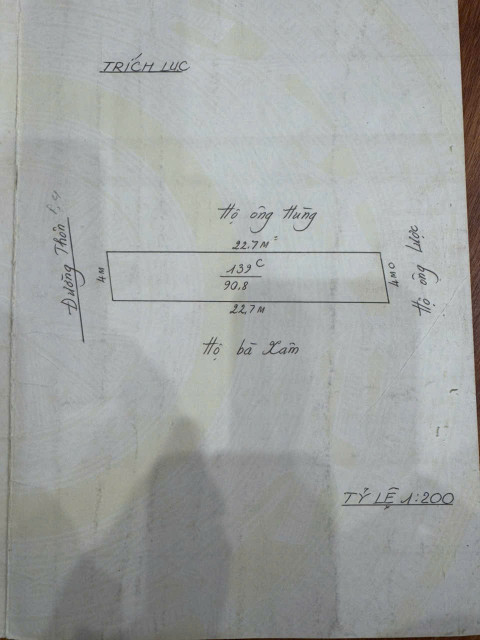 TRÍCH LỤC
Hộ ông Hùng
22.7M
Đường Thôn
4M
139C
90.8
4M0
Hộ ông Lược
22,7M
Hộ bà Xam
TỶ LỆ 1:200